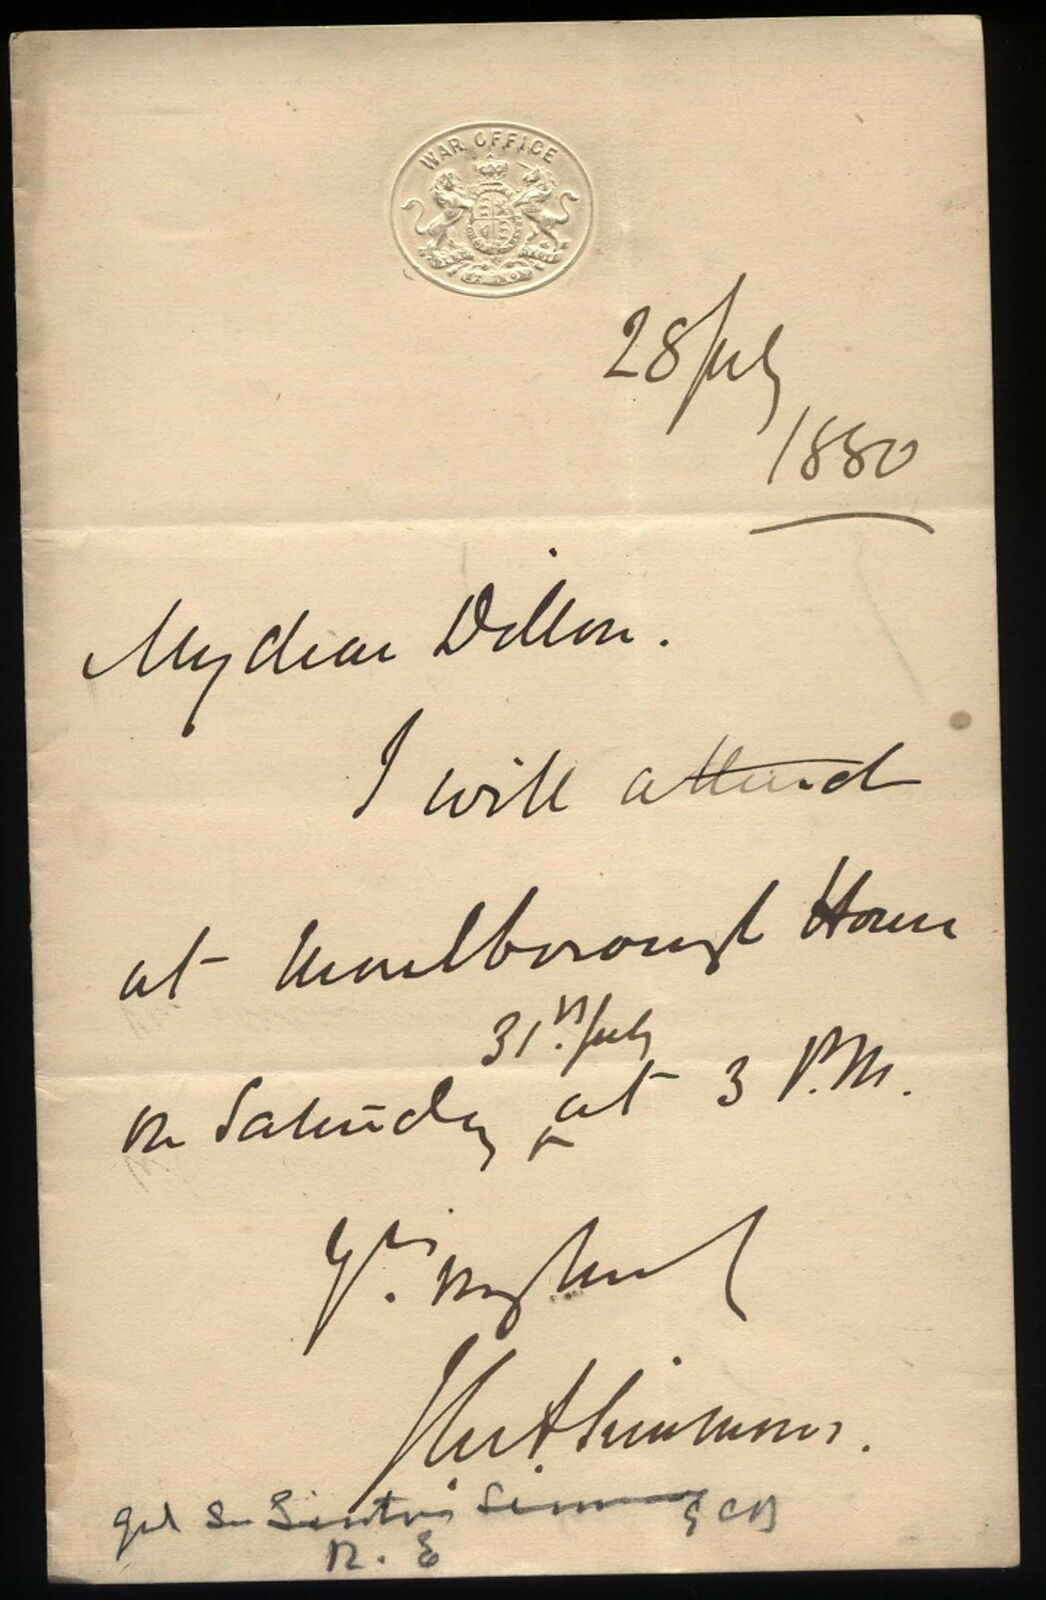 WAR OFFICE
28 July
1880
My dear Dillon.
I will attend
at Marlborough House
31st July
on Saturday at 3 P.M.
Yrs. very truly
J Simmons.
Genl Sir Lintorn Simmons GCB
R. E